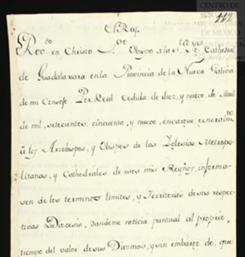 El Rey.
Rdo en Christo Pe Obispo de la Sta Yga Cathedral
de Guadalaxara en la Provincia de la Nueva Galicia
de mi Consejo. Por Real Cedula de diez, y nueve de
de mil, setecientos, cinquenta, y nueve, encargue
à los Arzobispos, y Obispos de las Iglesias Metropo-
litanas, y Cathedrales de esos mis Reynos, informa-
sen de los terminos limites, y Territorios de sus respec-
tivas Diocesis, dandome noticia puntual al propio
tiempo del valor de sus Diezmos, y sin embargo de que